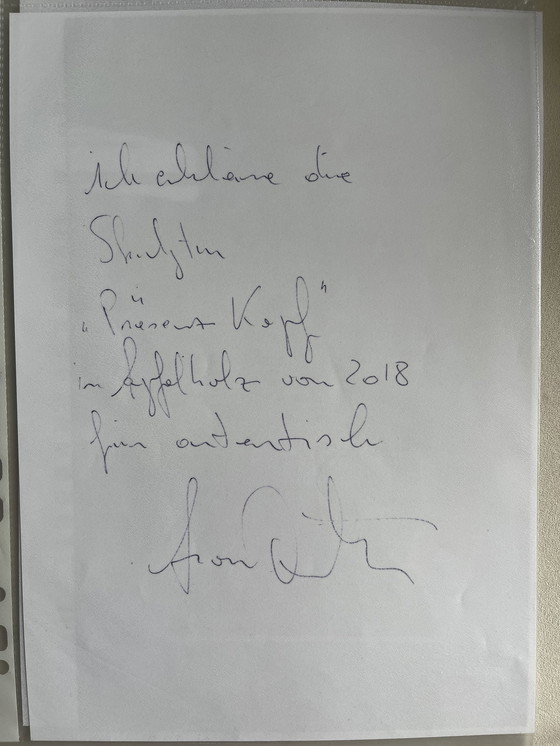 ich erkläre die
Skulptur
„Präsenz Kopf"
in Apfelholz von 2018
für autentisch